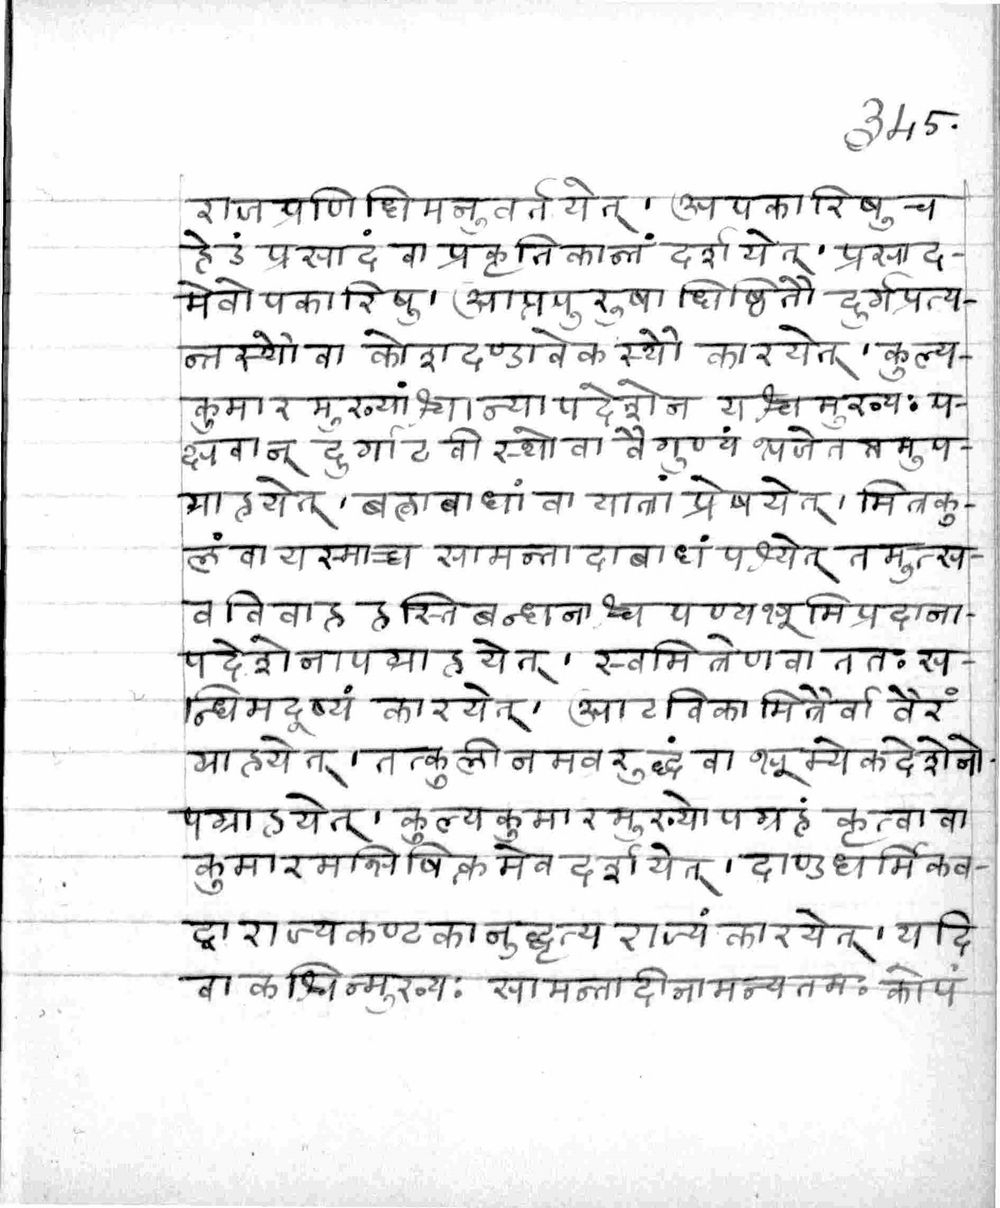 345.
राजप्रणिधिमनुवर्तयेत् । अपकारिषु च
हेडं प्रसादं वा प्रकृतिकान्तं दर्शयेत् । प्रसाद-
मेवोपकारिषु । आप्तपुरुषाधिष्ठितौ दुर्गप्रत्य-
न्तस्थौ वा कोशदण्डावेकस्थौ कारयेत् । कुल्य-
कुमारमुख्यांश्चान्यापदेशेन यश्च मुख्यः प-
क्षवान् दुर्गाटवीस्थो वा वैगुण्यं भजेत तमुप-
ग्राहयेत् । बह्वाबाधां वा यात्रां प्रेषयेत् । मित्रकु-
लं वा यस्माच्च सामन्तादाबाधं पश्येत् तमुत्स-
वविवाहहस्तिबन्धनाश्च पण्यभूमिप्रदाना-
पदेशेनापग्राहयेत् । स्वमित्रेण वा ततः स-
न्धिमदूष्यं कारयेत् । आटविकामित्रैर्वा वैरं
ग्राहयेत् । तत्कुलीनमवरुद्धं वा भूम्येकदेशेनो-
पग्राहयेत् । कुल्यकुमारमुख्योपग्रहं कृत्वा वा
कुमारमभिषिक्तमेव दर्शयेत् । दाण्डधर्मिकव-
द्वा राज्यकण्टकानुद्धृत्य राज्यं कारयेत् । यदि
वा कश्चिन्मुख्यः सामन्तादीनामन्यतमः कोपं